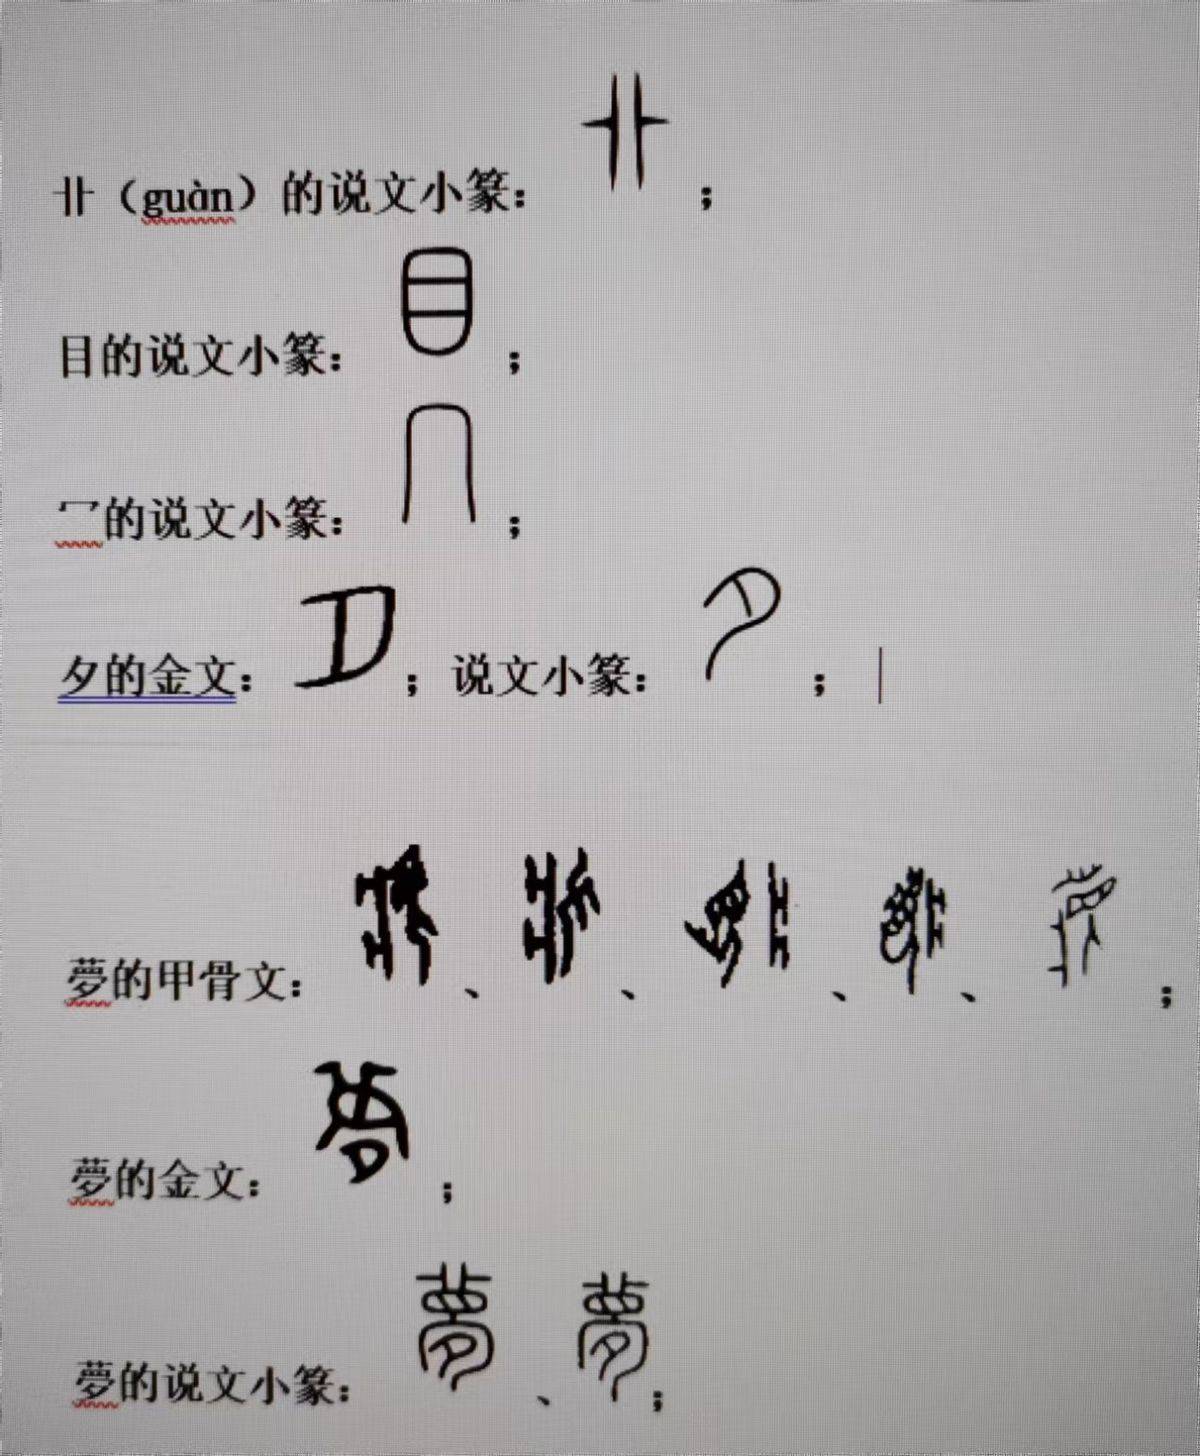 卝（guàn）的说文小篆：卝；
目的说文小篆：目；
冖的说文小篆：冖；
夕的金文：夕；说文小篆：夕；
夢的甲骨文：、、、、；
夢的金文：夢；
夢的说文小篆：夢、夢；